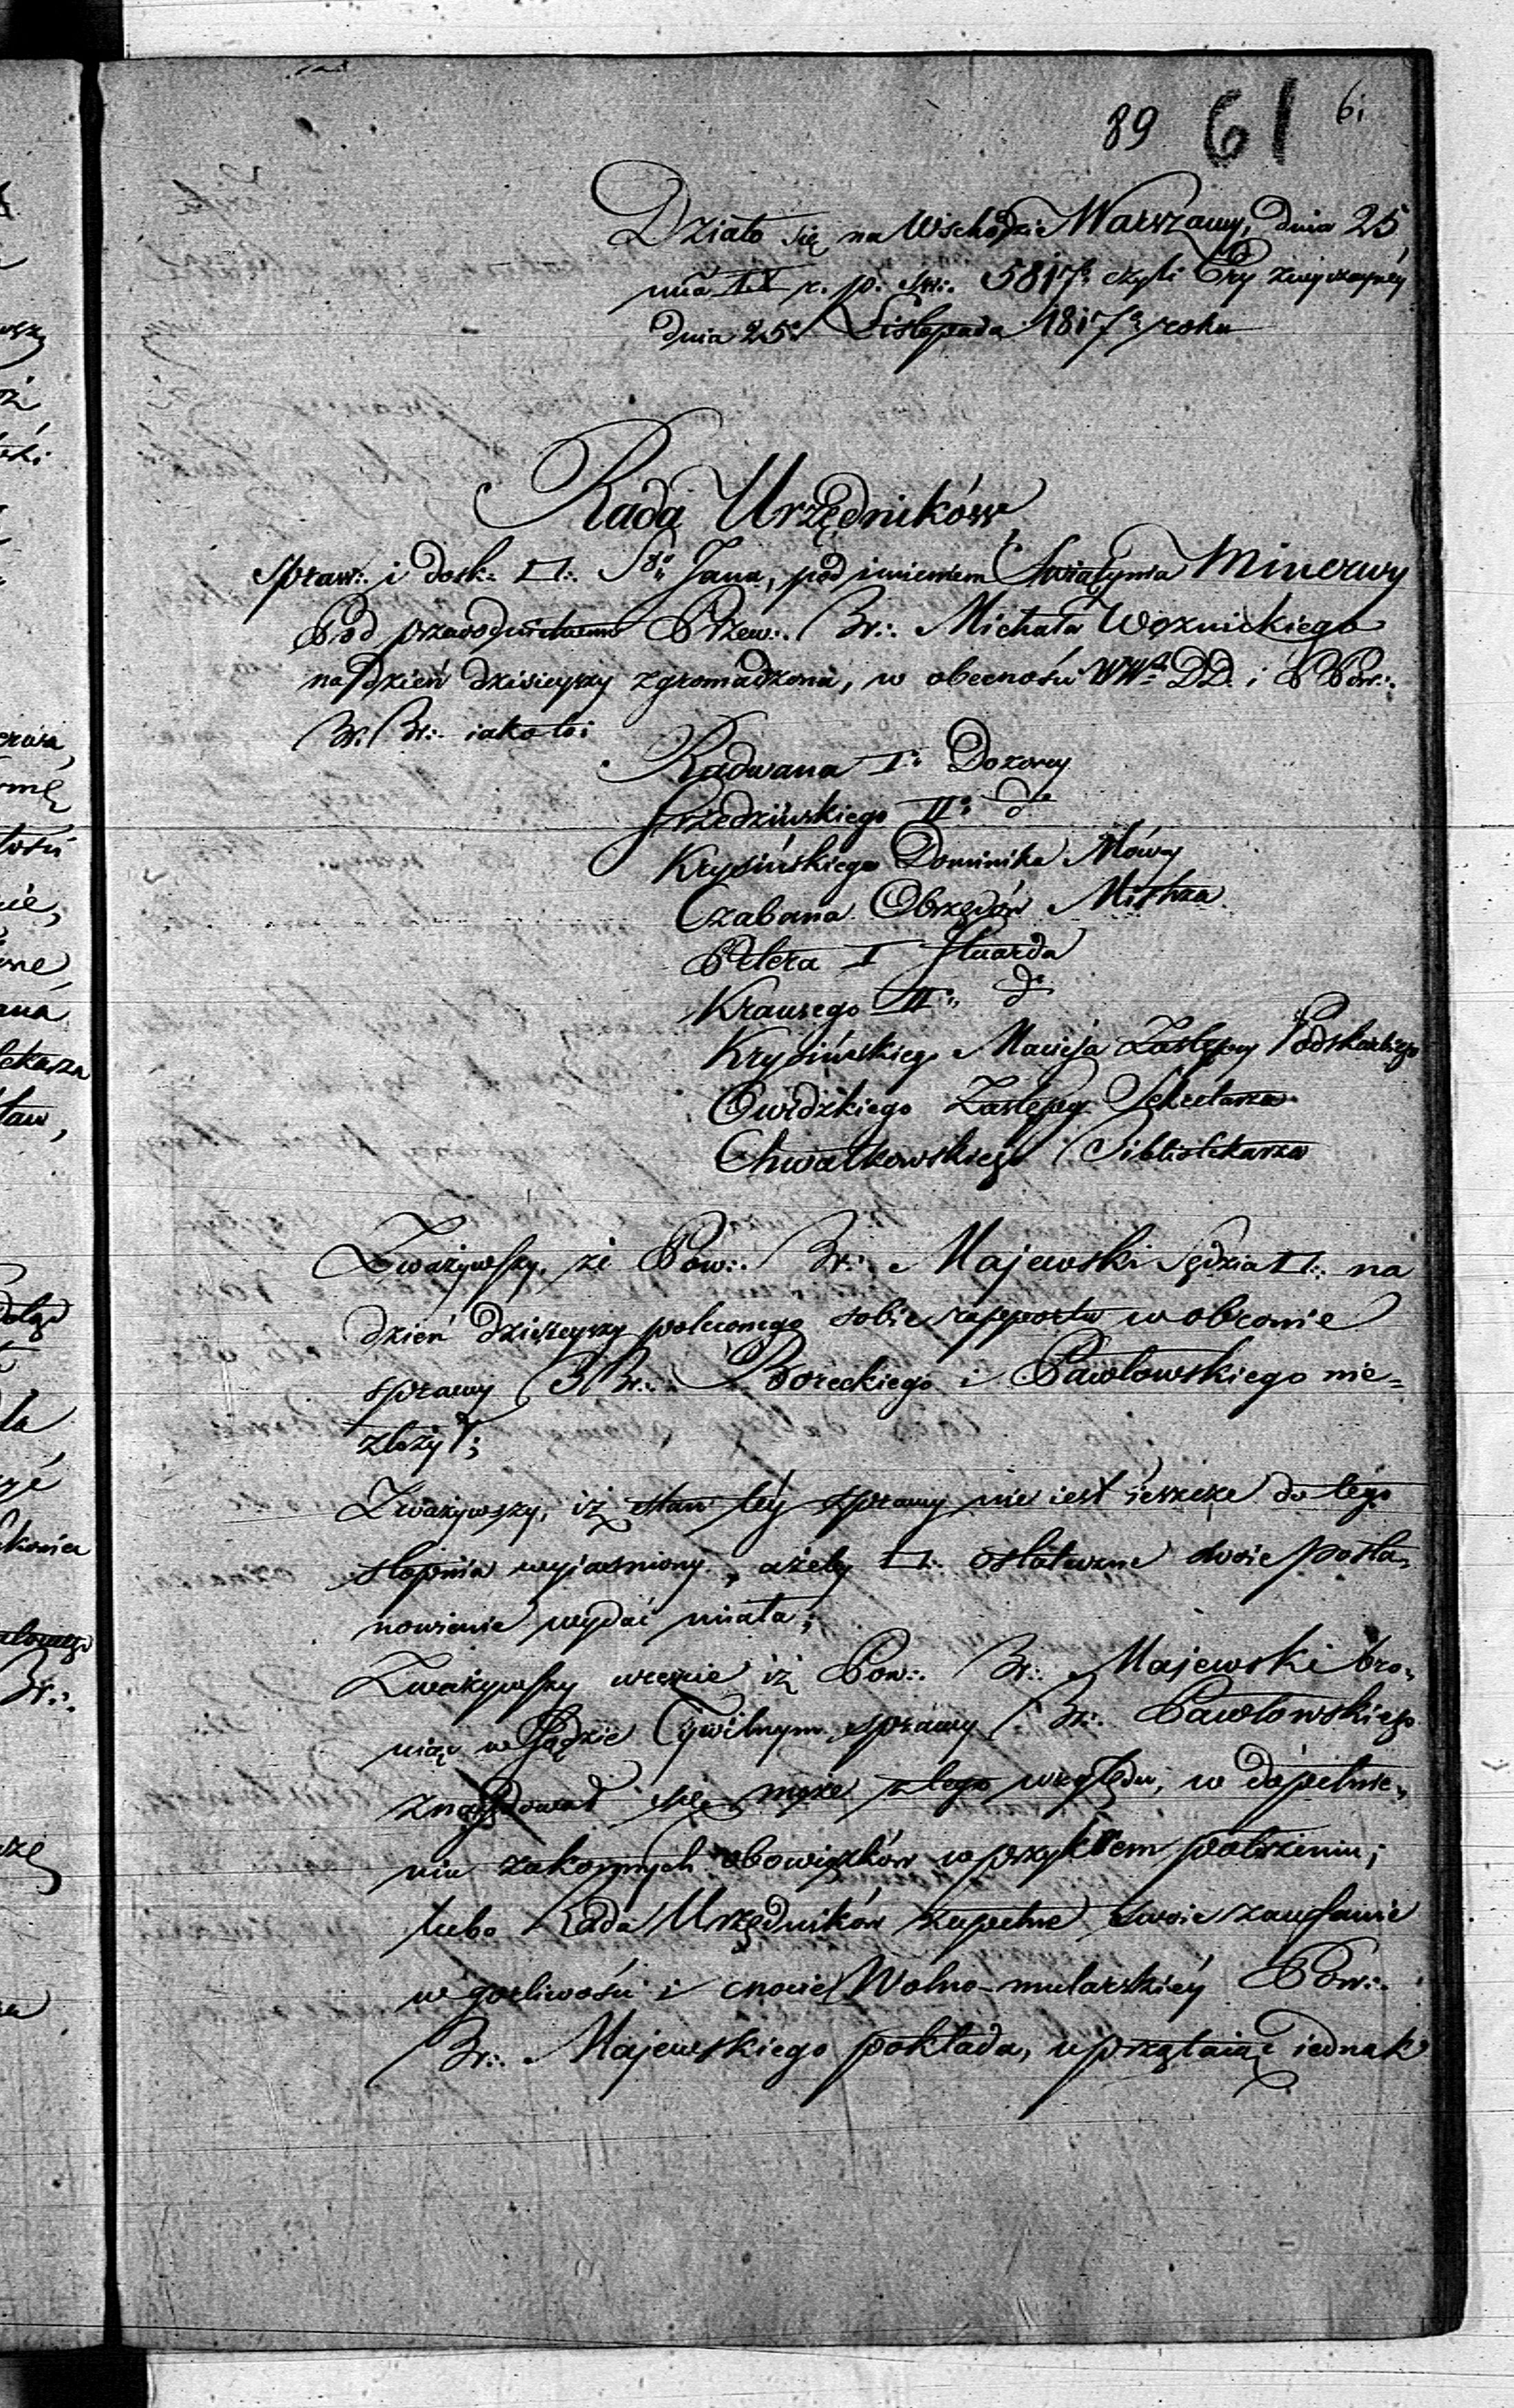 89 61 61
Działo się na Wschodzie Warszawy, dnia 25
mca IX r. p. św:. 5817o czyli Ery zwyczayney
dnia 25o Listopada 1817o roku
Rada Urzędników
spraw:. i dosk:. □:. Sgo Jana, pod imieniem Swiątynia Minerwy
Pod przewodnictwem Przew:. Br:. Michała Woznickiego
na dzień dzisieyszy zgromadzona, w obecności WWch DD. i PPow:.
Br. Br:. iako to:
Radwana Io Dozorcy
Grzedzińskiego IIo do
Krysińskiego Dominika Mówcy
Czabana Obrzędów Mistrza
Petera I Stuarda
Krausego IIo do
Krysińskiego Macieja Zastępcy Podskarbiego
Owidzkiego Zastępcy Sekretarza
Chwałkowskiego Bibliotekarza
Zważywszy, że Pow:. Br:. Majewski Sędzia □:. na
dzień dzisieyszy poleconego sobie rapportu w obronie
sprawy BBr:. Boreckiego i Pawłowskiego nie=
złożył;
Zważywszy, iż stan téy sprawy nie iest ieszcze do tego
stopnia wyjaśniony, ażeby □:. ostateczne swoie posta,
nowienie wydać miała;
Zważywszy wreszcie iż Pow:. Br:. Majewski bro,
niąc w Sądzie Cywilnym sprawy Br:. Pawłowskiego
znaydować się może z tego względu, w dopełnie,
niu zakonnych obowiązków w przykrem położeniu;
lubo Rada Urzędników zupełne swoie zaufanie
w gorliwości i cnocie Wolno-mularskiéy Pow:.
Br:. Majewskiego pokłada, uprzątaiąc iednak